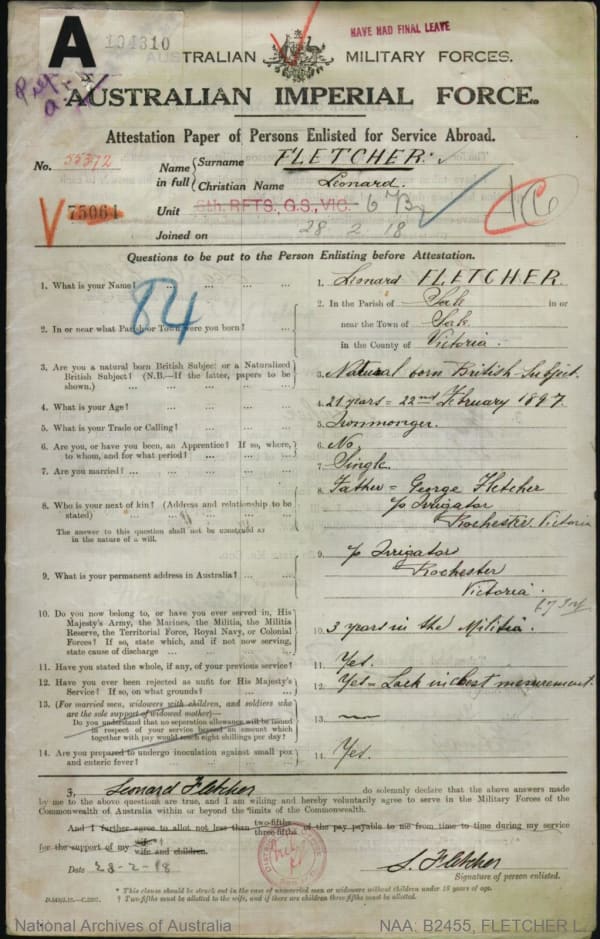 A
HAVE HAD FINAL LEAVE
AUSTRALIAN MILITARY FORCES.
AUSTRALIAN IMPERIAL FORCE.
Attestation Paper of Persons Enlisted for Service Abroad.
No. 55372
Name in full
Surname FLETCHER.
Christian Name Leonard.
75061
Unit 8th. RFTS, G.S., VIC.
Joined on 28 2 18
Questions to be put to the Person Enlisting before Attestation.
84
1. What is your Name? ... 1. Leonard FLETCHER.
2. In or near what Parish or Town were you born? ... 2. In the Parish of in or
near the Town of
in the County of Victoria.
3. Are you a natural born British Subject or a Naturalized
British Subject? (N.B.—If the latter, papers to be
shown.) ... 3. Natural born British Subject.
4. What is your Age? ... 4. 21 years = 22nd February 1897.
5. What is your Trade or Calling? ... 5. Ironmonger.
6. Are you, or have you been, an Apprentice? If so, where,
to whom, and for what period? ... 6. No.
7. Are you married? ... 7. Single.
8. Who is your next of kin? (Address and relationship to be
stated) 8. Father = George Fletcher
c/o Irrigator
Rochester Victoria
The answer to this question shall not be construed as
in the nature of a will.
9. What is your permanent address in Australia? ... 9. c/o Irrigator
Rochester
Victoria.
10. Do you now belong to, or have you ever served in, His
Majesty's Army, the Marines, the Militia, the Militia
Reserve, the Territorial Force, Royal Navy, or Colonial
Forces? If so, state which, and if not now serving,
state cause of discharge ... 10. 3 years in the Militia.
11. Have you stated the whole, if any, of your previous service? 11. Yes.
12. Have you ever been rejected as unfit for His Majesty's
Service? If so, on what grounds? ... 12. Yes = Lack in chest mesurement.
13. (For married men, widowers with children, and soldiers who
are the sole support of widowed mother)—
Do you understand that no separation allowance will be issued
in respect of your service beyond an amount which
together with pay would reach eight shillings per day? 13.
14. Are you prepared to undergo inoculation against small pox
and enteric fever? ... 14. Yes.
I, Leonard Fletcher do solemnly declare that the above answers made
by me to the above questions are true, and I am willing and hereby voluntarily agree to serve in the Military Forces of the
Commonwealth of Australia within or beyond the limits of the Commonwealth.
And I further agree to allot not less than two-fifths three-fifths of the pay payable to me from time to time during my service
for the support of my wife wife and children.
Date 28-2-18
L. Fletcher
Signature of person enlisted.
* This clause should be struck out in the case of unmarried men or widowers without children under 18 years of age.
† Two-fifths must be allotted to the wife, and if there are children three-fifths must be allotted.
National Archives of Australia
NAA: B2455, FLETCHER L